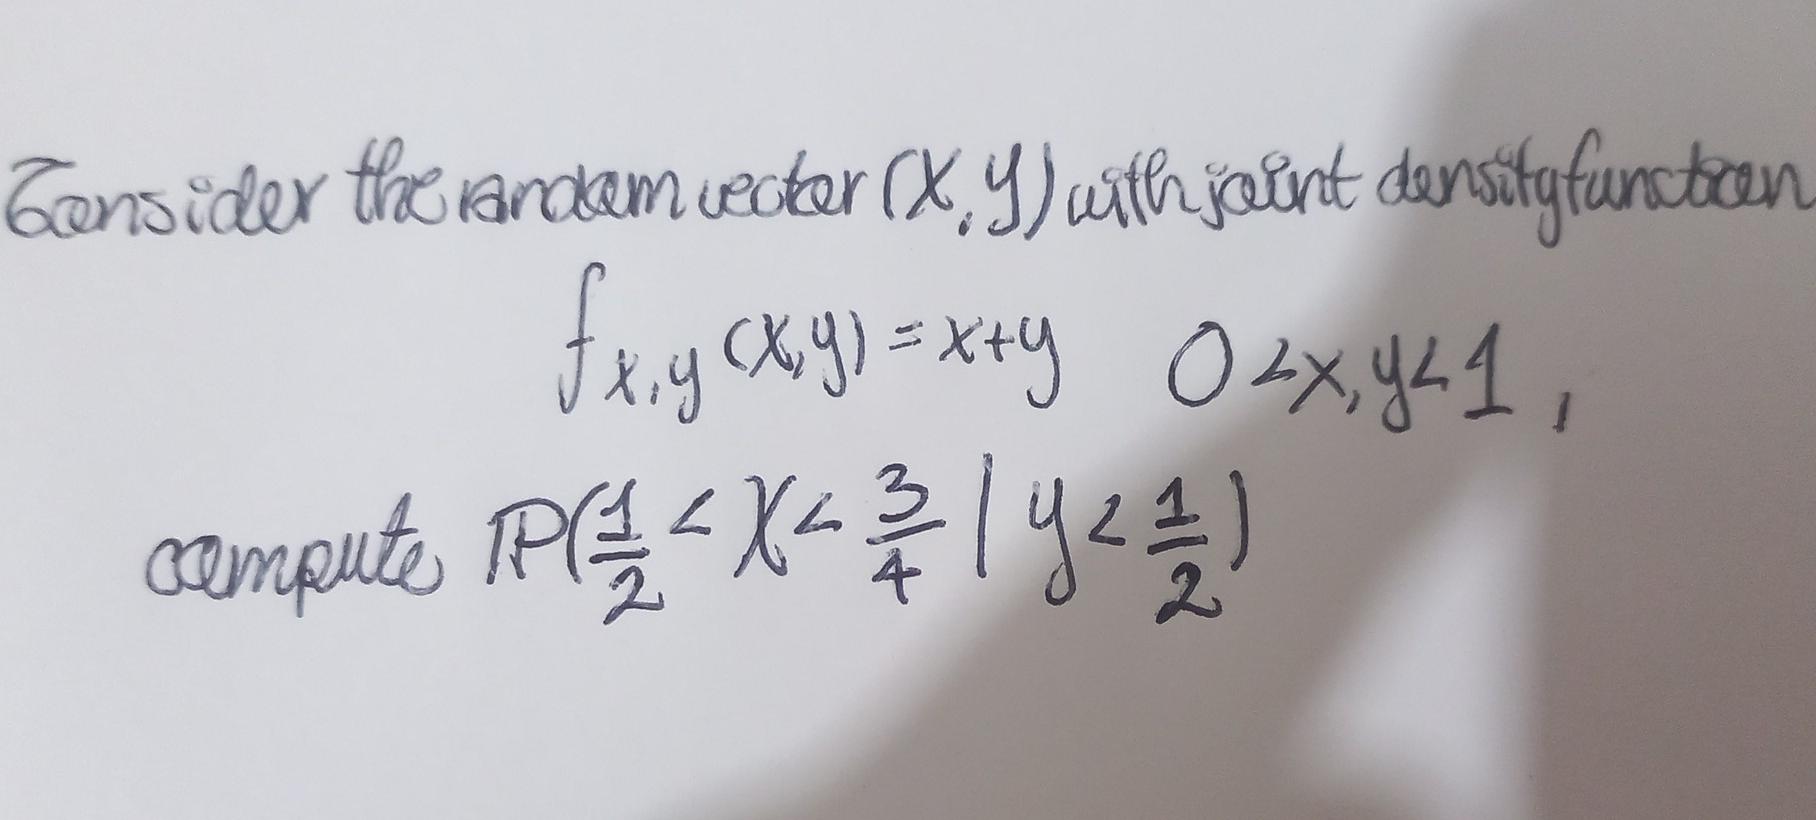 Consider the random vector (X,Y) with joint density function
f_{X,Y}(x,y) = x+y 0<x,y<1,
compute ℙ(1/2 < X < 3/4 | Y < 1/2)